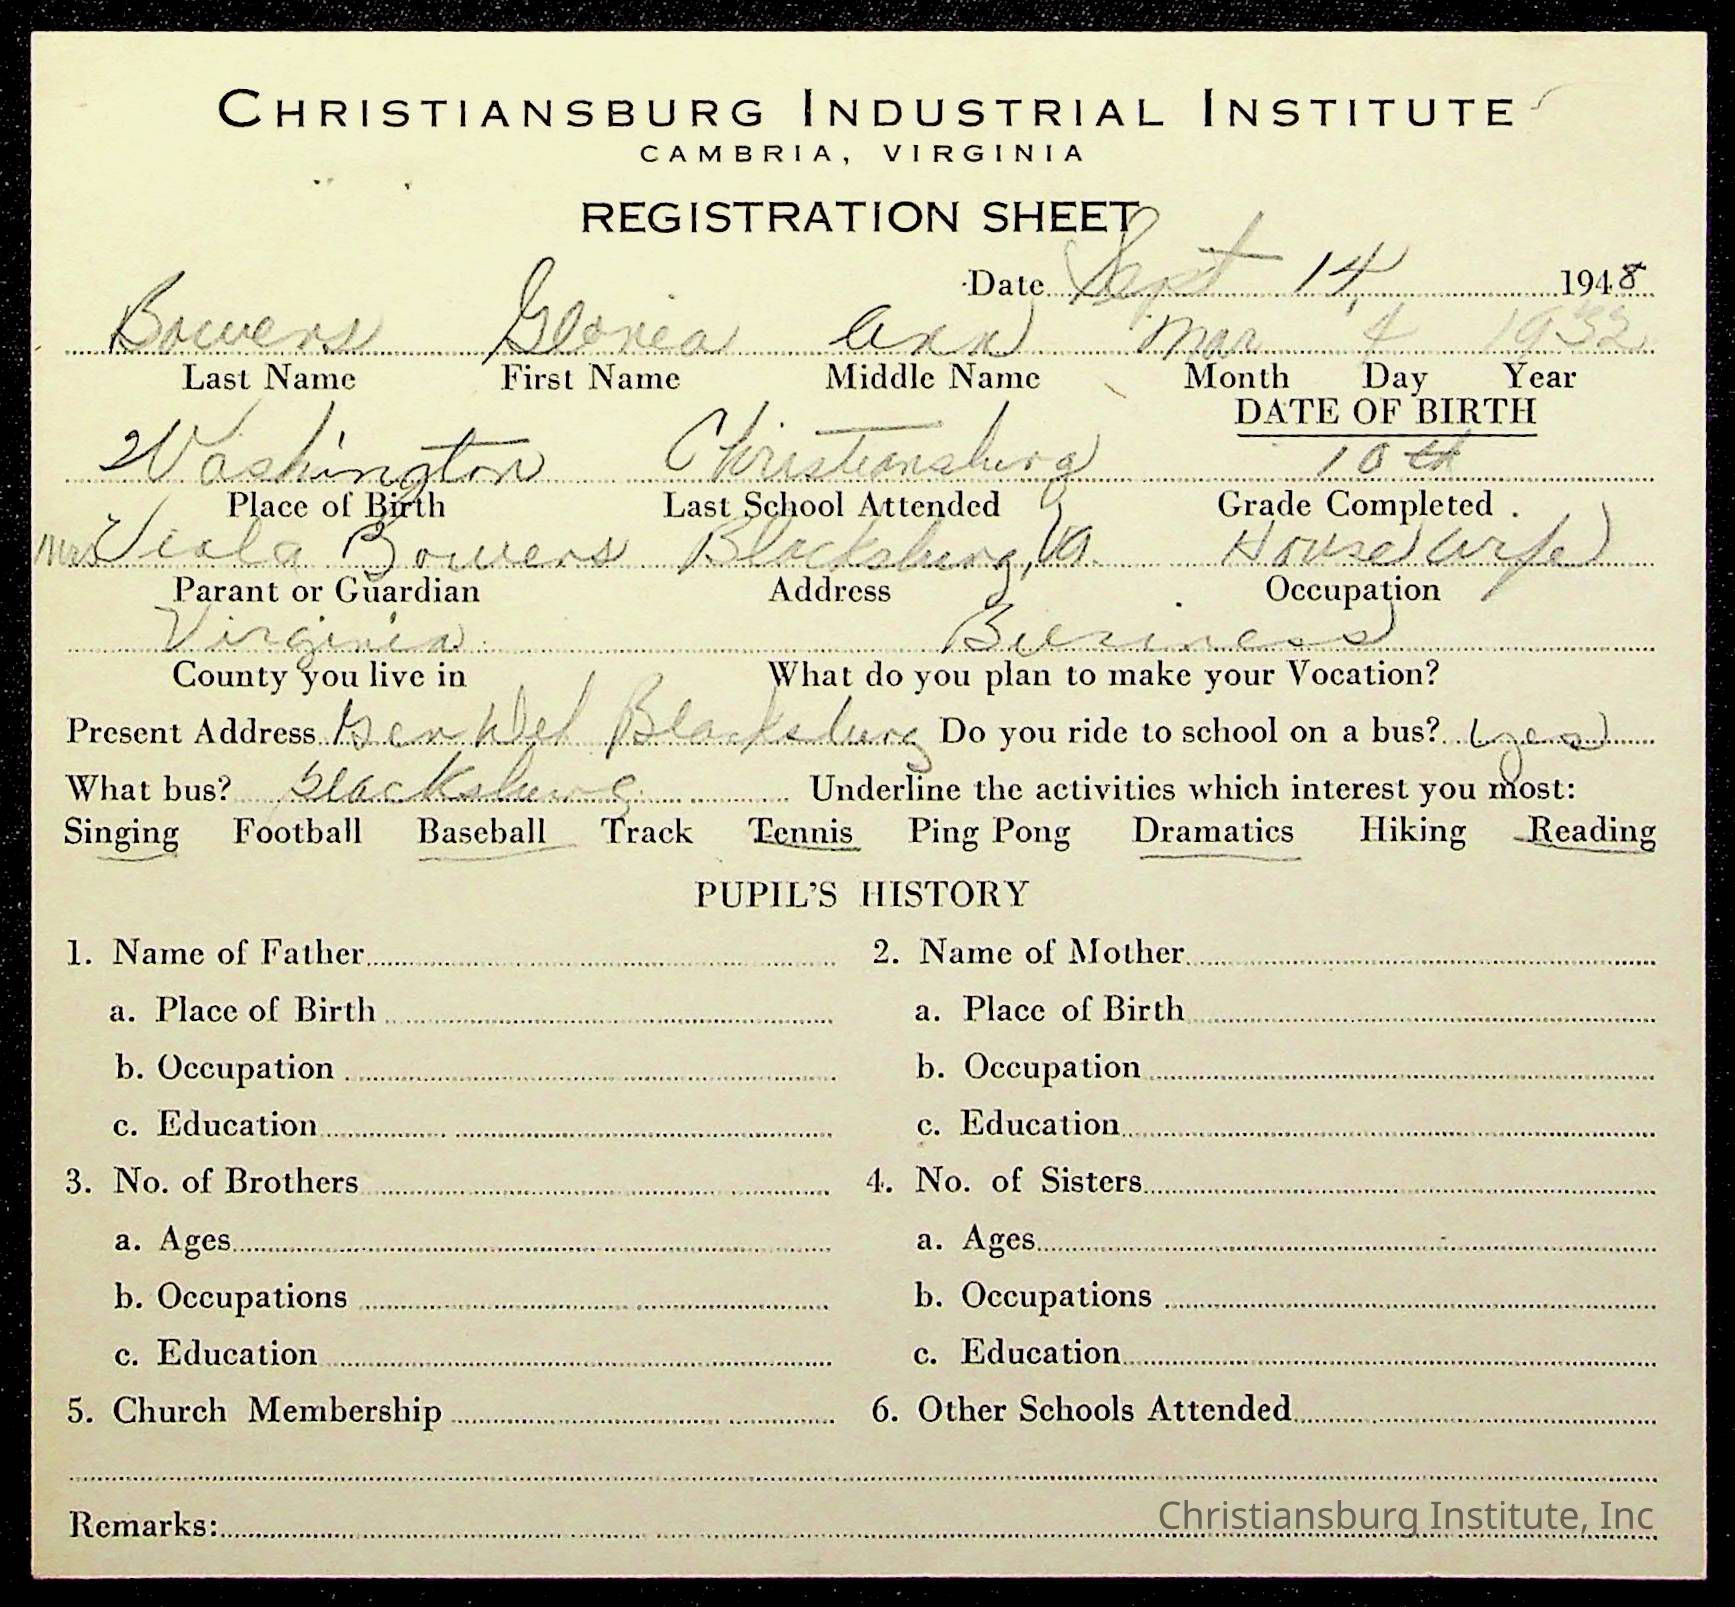 CHRISTIANSBURG INDUSTRIAL INSTITUTE
CAMBRIA, VIRGINIA
REGISTRATION SHEET
Date Sept 14 1948
Bowers Gloria Ann Mar 4 1932
Last Name First Name Middle Name Month Day Year
DATE OF BIRTH
Washington Christiansburg 10th
Place of Birth Last School Attended Grade Completed .
Mrs Viola Bowers Blacksburg, Va. House wife
Parant or Guardian Address Occupation
Virginia Business
County you live in What do you plan to make your Vocation?
Present Address Gen Del Blacksburg Do you ride to school on a bus? (yes)
What bus? Blacksburg Underline the activities which interest you most:
Singing Football Baseball Track Tennis Ping Pong Dramatics Hiking Reading
PUPIL'S HISTORY
1. Name of Father 2. Name of Mother
a. Place of Birth a. Place of Birth
b. Occupation b. Occupation
c. Education c. Education
3. No. of Brothers 4. No. of Sisters
a. Ages a. Ages
b. Occupations b. Occupations
c. Education c. Education
5. Church Membership 6. Other Schools Attended
Remarks:
Christiansburg Institute, Inc